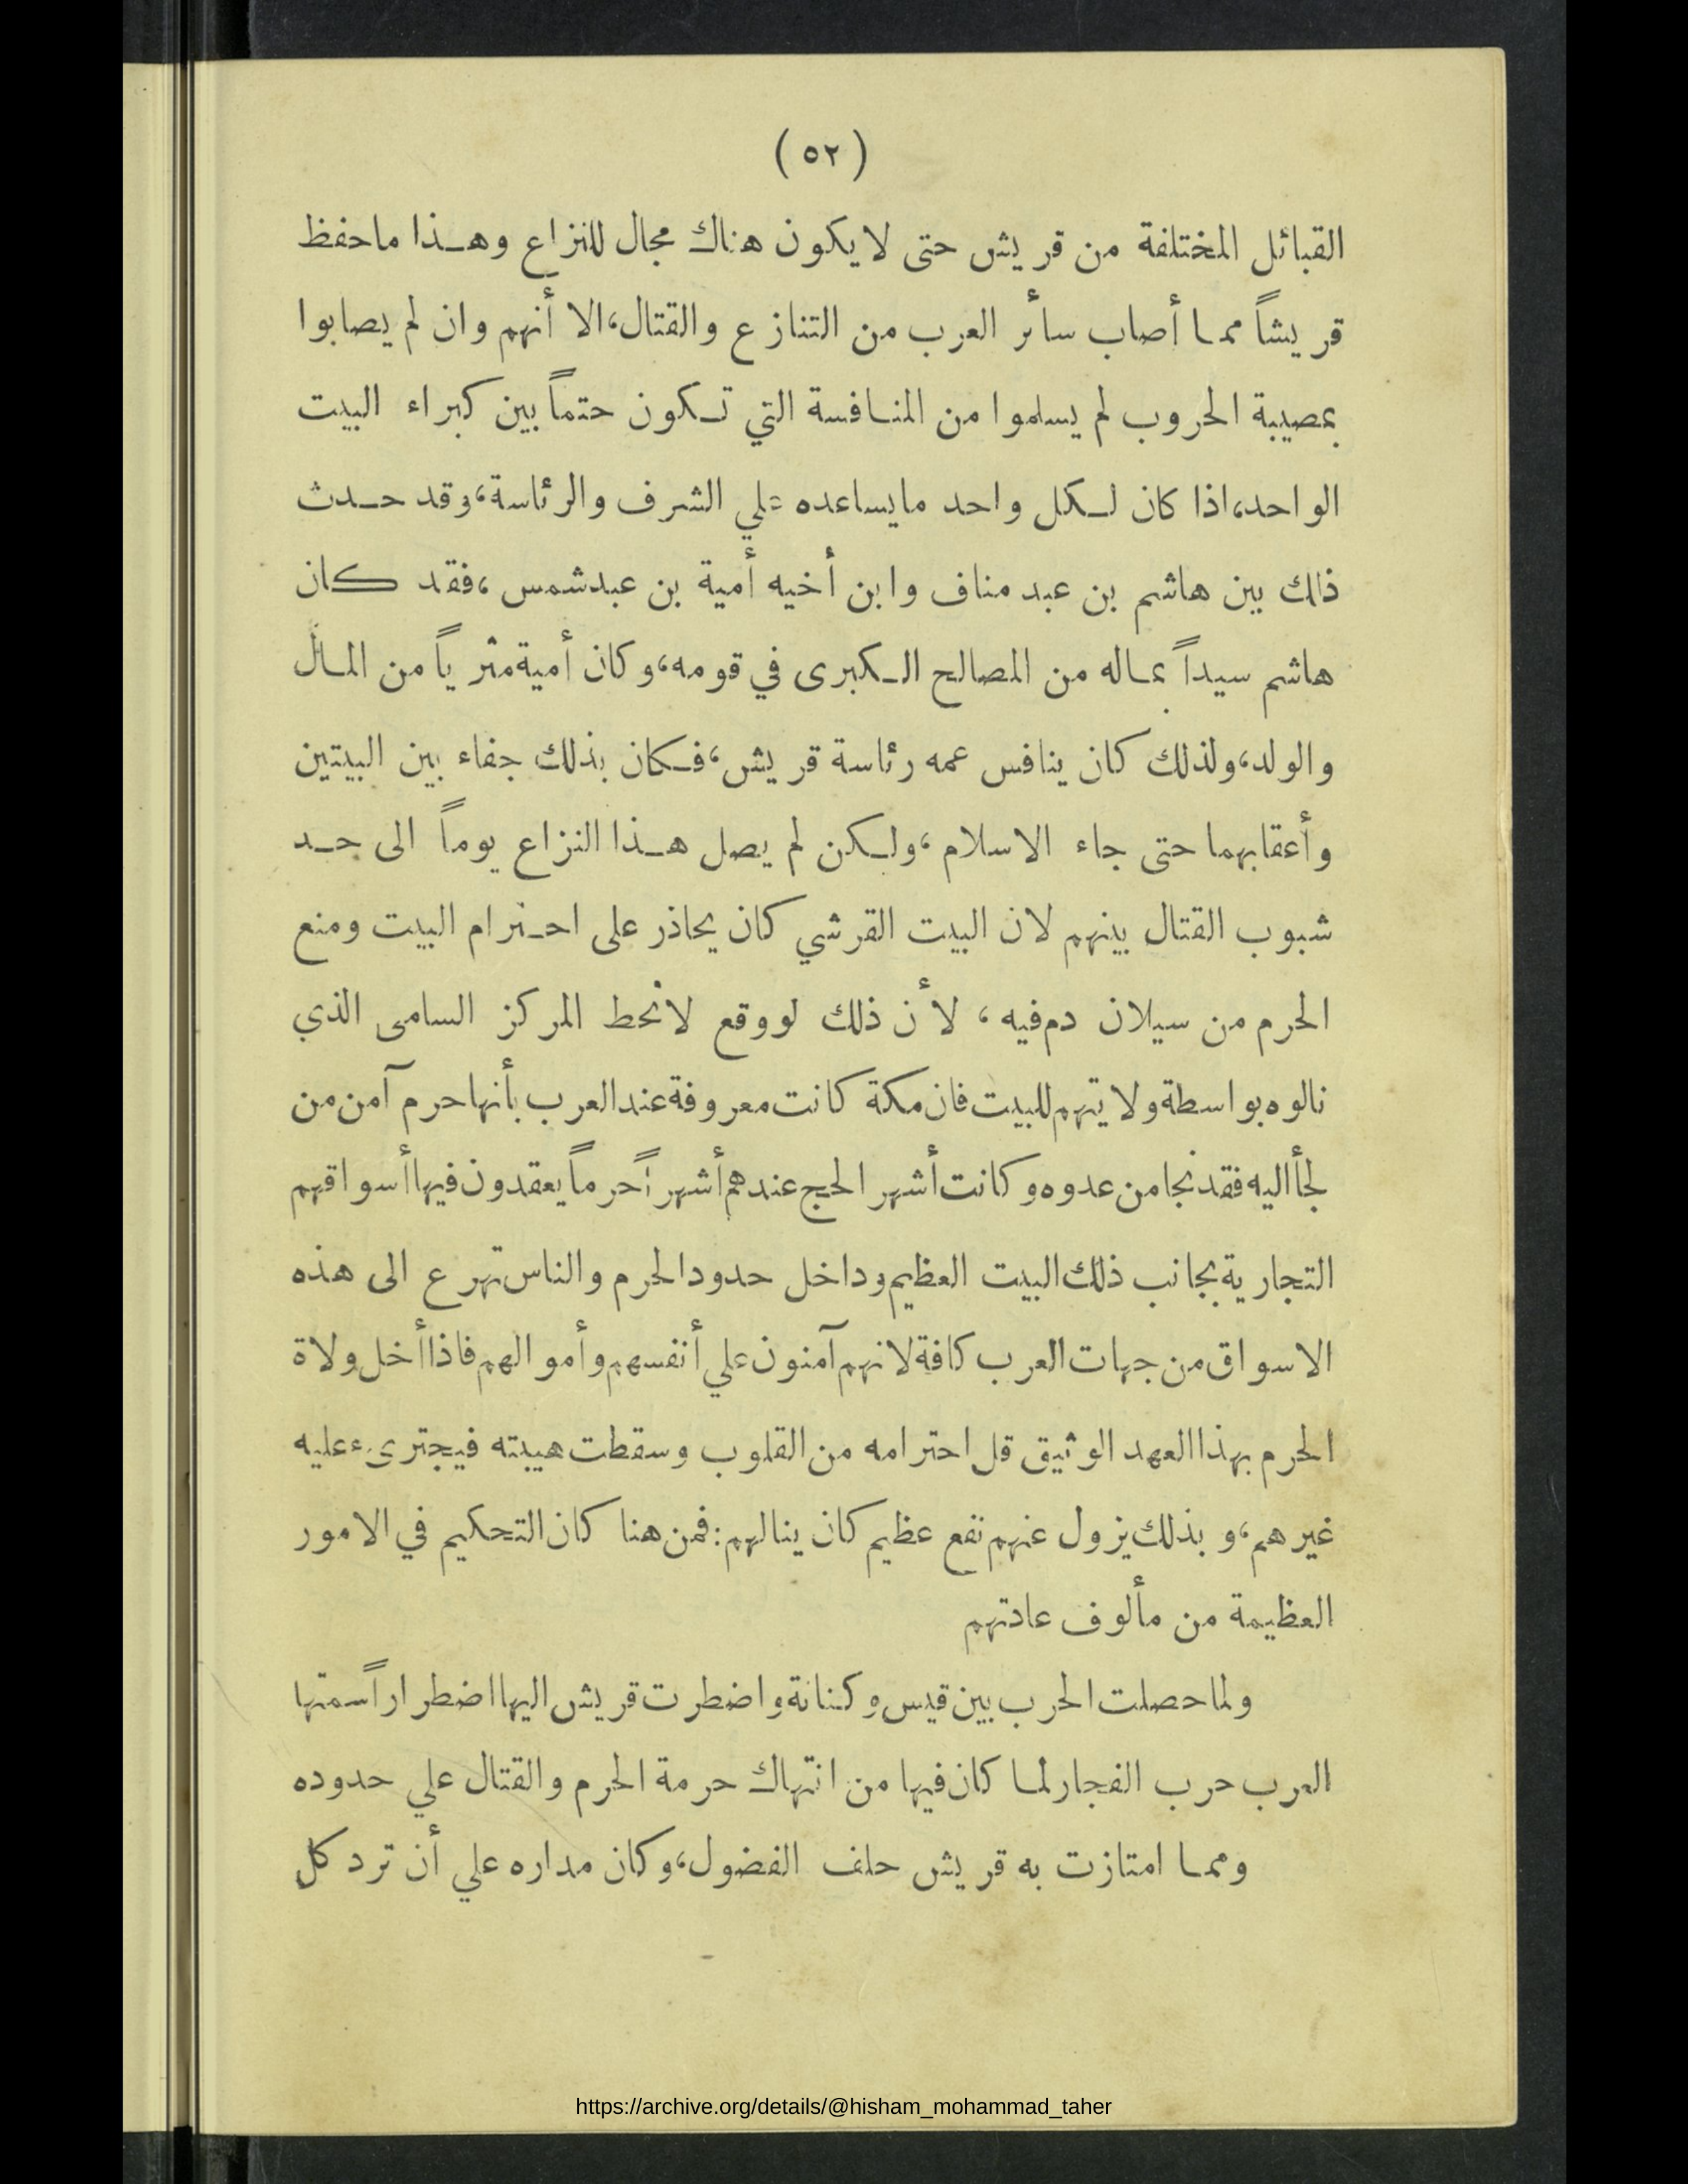 ( ٥٢ )
القبائل المختلفة من قريش حتى لا يكون هناك مجال للنزاع وهـذا ما حفظ
قريشاً ممـا أصاب سائر العرب من التنازع والقتال، الا أنهم وان لم يصابوا
بمصيبة الحروب لم يسلموا من المنـافسة التي تـكون حتماً بين كبراء البيت
الواحد، اذا كان لـكل واحد ما يساعده علي الشرف والرئاسة، وقد حـدث
ذلك بين هاشم بن عبد مناف وابن أخيه أمية بن عبد شمس ، فقد كـان
هاشم سيداً بمـاله من المصالح الـكبرى في قومه، وكان أمية مثرياً من المـال
والولد، ولذلك كان ينافس عمه رئاسة قريش، فـكان بذلك جفاء بين البيتين
وأعقابهما حتى جاء الاسلام ، ولـكن لم يصل هـذا النزاع يوماً الى حـد
شبوب القتال بينهم لان البيت القرشي كان يحاذر على احـترام البيت ومنع
الحرم من سيلان دم فيه ، لأن ذلك لو وقع لانحط المركز السامى الذي
نالوه بواسطة ولايتهم للبيت فان مكة كانت معروفة عند العرب بأنها حرم آمن من
لجأ اليه فقد نجا من عدوه وكانت أشهر الحج عندهم أشهراً حرماً يعقدون فيها أسواقهم
التجارية بجانب ذلك البيت العظيم وداخل حدود الحرم والناس تهرع الى هذه
الاسواق من جهات العرب كافة لانهم آمنون علي أنفسهم وأموالهم فاذا أخل ولاة
الحرم بهذا العهد الوثيق قل احترامه من القلوب وسقطت هيبته فيجترىء عليه
غيرهم، وبذلك يزول عنهم نفع عظيم كان ينالهم: فمن هنا كان التحكيم في الامور
العظيمة من مألوف عادتهم
ولما حصلت الحرب بين قيس وكنانة واضطرت قريش اليها اضطراراً سمتها
العرب حرب الفجار لمـا كان فيها من انتهاك حرمة الحرم والقتال علي حدوده
وممـا امتازت به قريش حلف الفضول، وكان مداره علي أن ترد كل
https://archive.org/details/@hisham_mohammad_taher